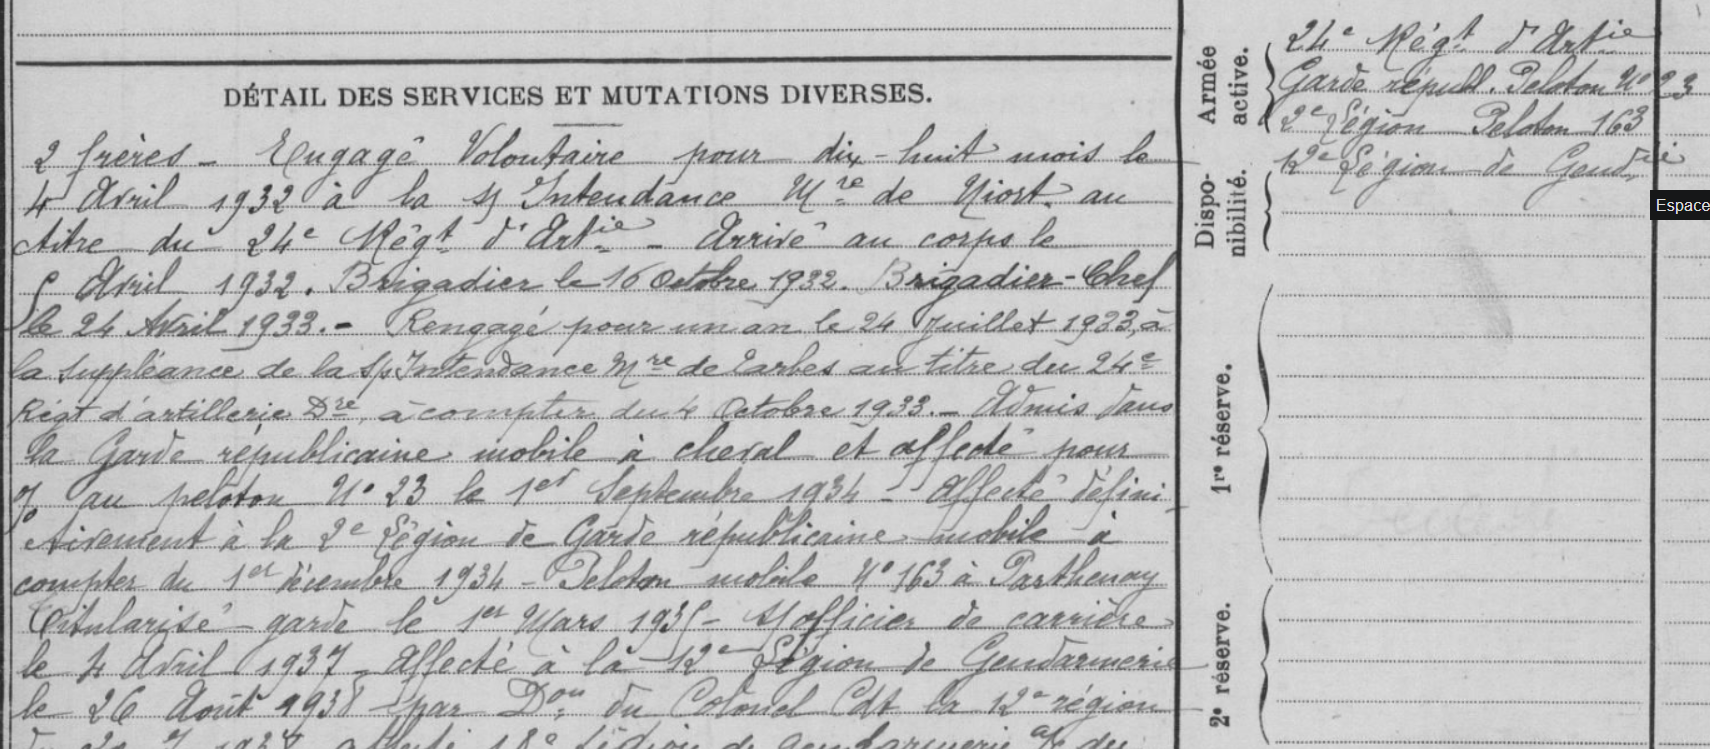 DÉTAIL DES SERVICES ET MUTATIONS DIVERSES.
2 frères - Engagé Volontaire pour dix-huit mois le
4 Avril 1932 à la s/ Intendance Mre de Niort au
titre du 24e Régt d'Artie - Arrivé au corps le
5 Avril 1932. Brigadier le 16 Octobre 1932. Brigadier-Chef
le 24 Avril 1933.- Rengagé pour un an le 24 Juillet 1933, à
la suppléance de la S/Intendance Mre de Tarbes au titre du 24e
Régt d'artillerie Dre, à compter du 4 Octobre 1933.- Admis dans
la Garde républicaine mobile à cheval et affecté pour
au peloton No 23 le 1er Septembre 1934 - Affecté défini
tivement à la 2e Légion de Garde républicaine mobile à
compter du 1er décembre 1934 - Peloton mobile No 163 à Parthenay
Titularisé garde le 1er Mars 1935 - S/officier de carrière
le 4 Avril 1937 - Affecté à la 12e Légion de Gendarmerie
le 26 Août 1938 par Don du Colonel Cdt la 12e région
affecté 18e Légion de gendarmerie
Armée active.
24e Régt d'Artie
Garde républ. Peloton No 23
2e Légion Peloton 163
12e Légion de Gendie
Dispo-
nibilité.
Espace
1re réserve.
2e réserve.